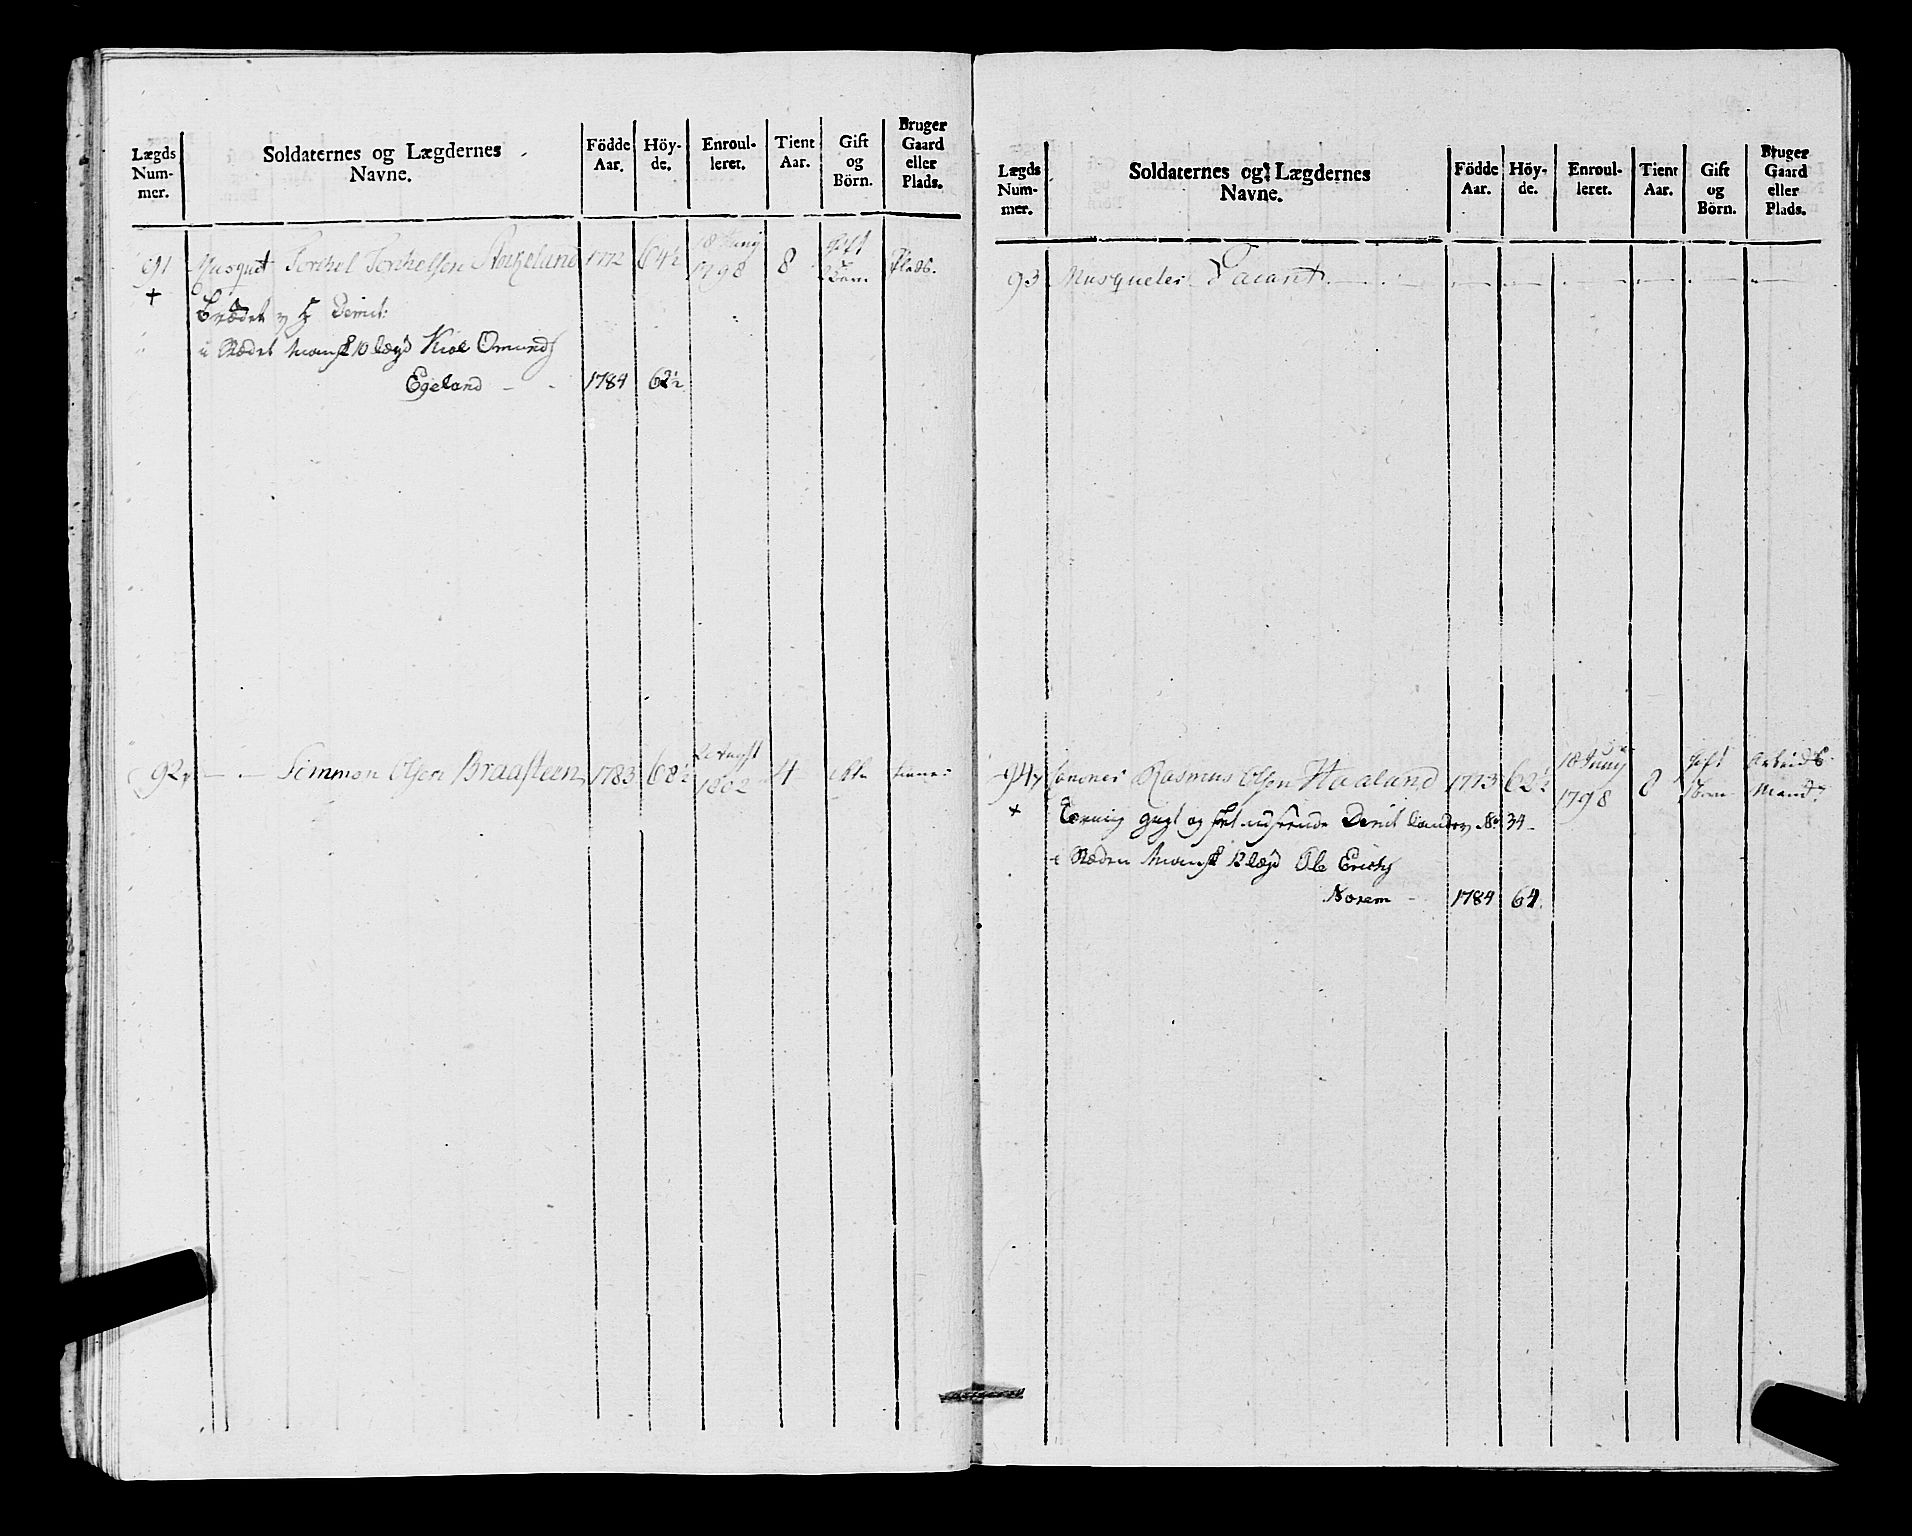 Lægds Num- mer.
Soldaternes og Lægdernes Navne.
Födde Aar.
Höy- de.
Enroul- leret.
Tient Aar.
Gift og Börn.
Bruger Gaard eller Plads.
91 Musquet Torchel Torchelsen 1772 64½ 18 Juny 1798 8 Gift Plads.
+
Demit:
i Stædet 10 lægd Omunds
Egeland - - 1784 62½
92 - - Simmon Olsen Braasteen 1783 68½ 1802 4 tiener
Lægds Num- mer.
Soldaternes og Lægdernes Navne.
Födde Aar.
Höy- de.
Enroul- leret.
Tient Aar.
Gift og Börn.
Bruger Gaard eller Plads.
93 Musqueter Vacant
94 Rasmus Olsen Haaland 1773 62½ 18 Juny 1798 8 Gift Arbeids Mand
+ gigt og udseende Demit No 34
i Stæden 12 lægd Ole Erichs
Norem - 1784 64